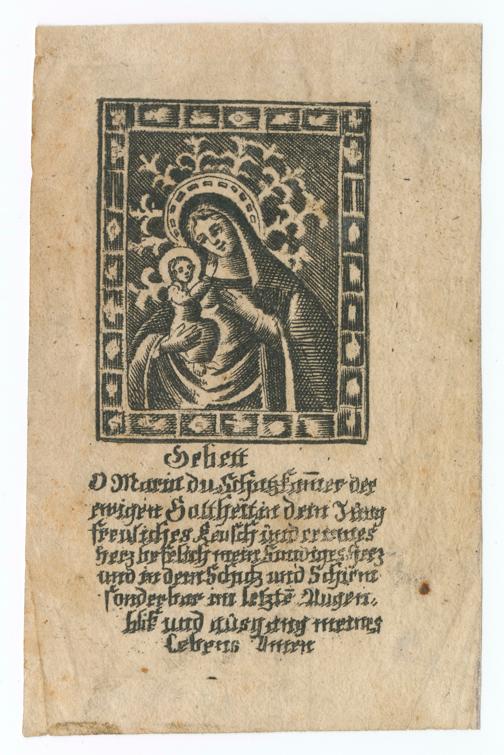 Gebett
O Maria du Schatzkam̄er der
ewigen Gottheit, in dein Jung
freuliches Keusch und reines
herz befelich mein Sündiges herz
und in dem Schutz und Schirm
sonderbar im letztē Augen,
blik und ausgang meines
Lebens Amen